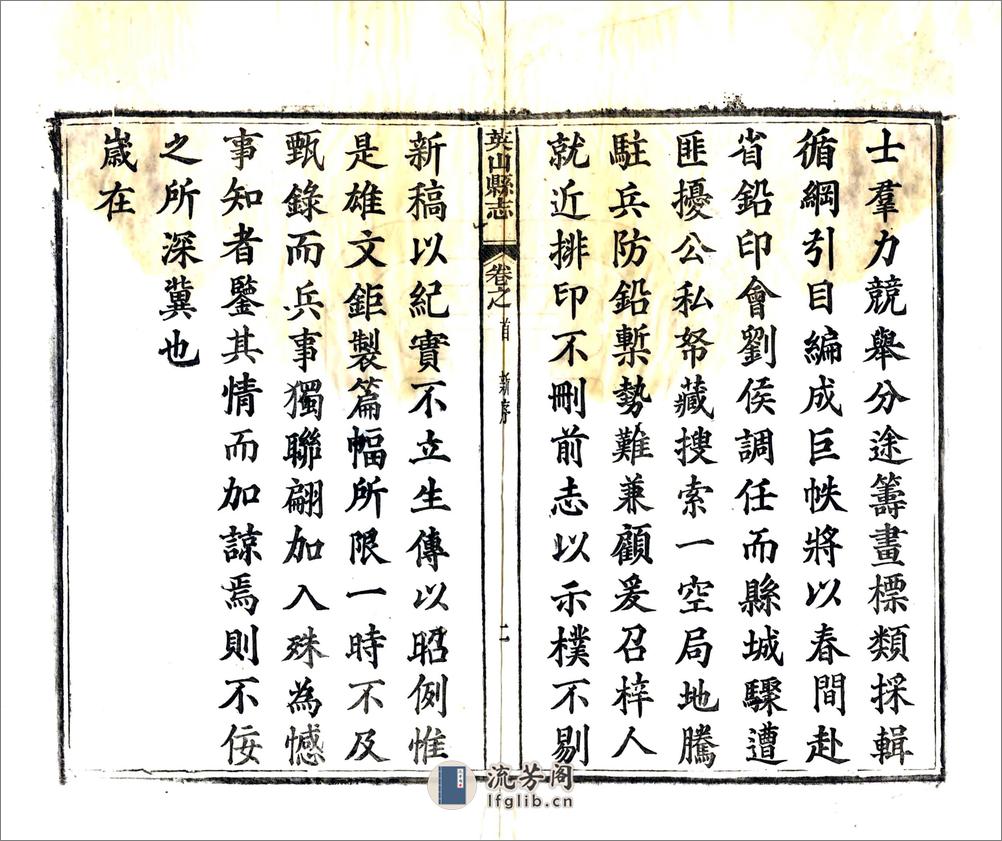 士羣力競舉分途籌畫標類採輯
循綱引目編成巨帙將以春間赴
省鉛印會劉侯調任而縣城驟遭
匪擾公私帑藏搜索一空局地騰
駐兵防鉛槧勢難兼顧爰召梓人
就近排印不刪前志以示樸不剔
英山縣志 卷之首 新序 二
新稿以紀實不立生傳以昭例惟
是雄文鉅製篇幅所限一時不及
甄錄而兵事獨聯翩加入殊為憾
事知者鑒其情而加諒焉則不佞
之所深冀也
歲在
流芳阁
lfglib.cn